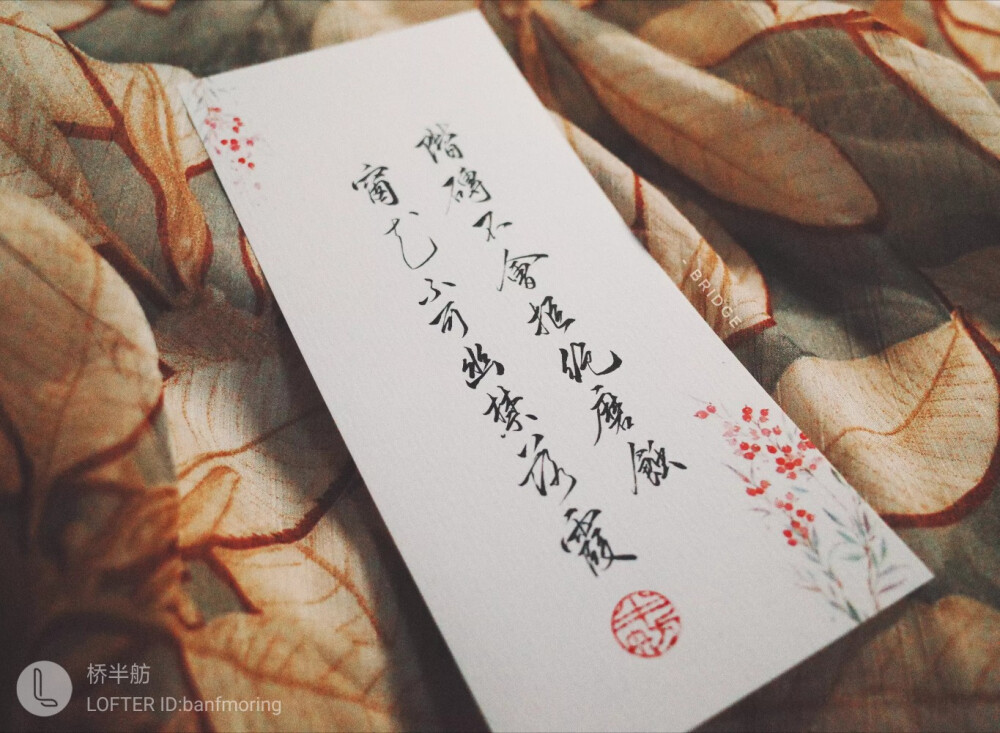 階磚不會拒絕磨蝕
窗花不可幽禁落霞
BRIDGE
桥半舫
LOFTER ID:banfmoring